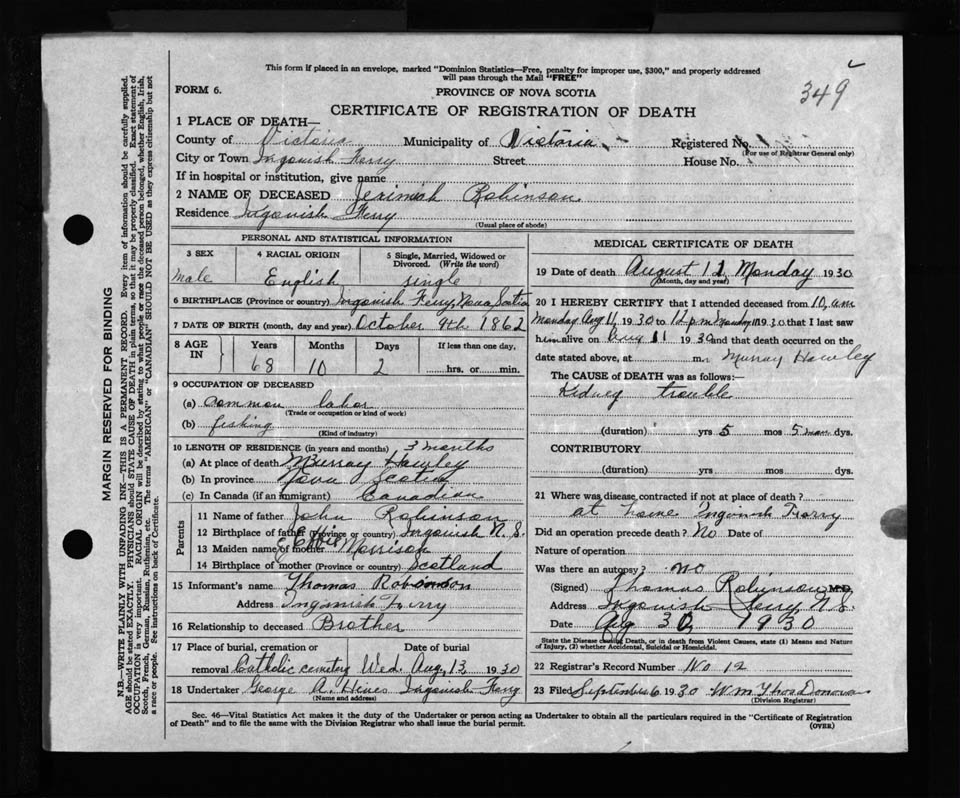 This form if placed in an envelope, marked "Dominion Statistics—Free, penalty for improper use, $300," and properly addressed
will pass through the Mail "FREE"
349
FORM 6.
PROVINCE OF NOVA SCOTIA
CERTIFICATE OF REGISTRATION OF DEATH
1 PLACE OF DEATH—
County of Victoria Municipality of Victoria Registered No.
(For use of Registrar General only)
City or Town Ingonish Ferry Street House No.
If in hospital or institution, give name
2 NAME OF DECEASED Jerimiah Robinson
Residence Ingonish Ferry
(Usual place of abode)
PERSONAL AND STATISTICAL INFORMATION
3 SEX 4 RACIAL ORIGIN 5 Single, Married, Widowed or Divorced. (Write the word)
male English single
6 BIRTHPLACE (Province or country) Ingonish Ferry, Nova Scotia
7 DATE OF BIRTH (month, day and year) October 9th 1862
8 AGE IN Years Months Days If less than one day,
68 10 2 hrs. or min.
9 OCCUPATION OF DECEASED
(a) common labor
(Trade or occupation or kind of work)
(b) fishing
(Kind of industry)
10 LENGTH OF RESIDENCE (in years and months) 3 months
(a) At place of death Murray Hawley
(b) In province Nova Scotia
(c) In Canada (if an immigrant) Canadian
Parents
11 Name of father John Robinson
12 Birthplace of father (Province or country) Ingonish N. S.
13 Maiden name of mother Morrison
14 Birthplace of mother (Province or country) Scotland
15 Informant's name Thomas Robinson
Address Ingonish Ferry
16 Relationship to deceased Brother
17 Place of burial, cremation or Date of burial
removal Catholic cemetery Wed. Aug, 13, 1930
18 Undertaker George A. Hines Ingonish Ferry
(Name and address)
MEDICAL CERTIFICATE OF DEATH
19 Date of death August 11, Monday 1930
(Month, day and year)
20 I HEREBY CERTIFY that I attended deceased from 10, a.m
Monday Aug 11, 1930 to 12 p m Monday 11 1930 that I last saw
him alive on Aug 11 1930 and that death occurred on the
date stated above, at m. Murray Hawley
The CAUSE OF DEATH was as follows:
Kidney trouble
(duration) yrs 5 mos 5 dys.
CONTRIBUTORY
(duration) yrs mos dys.
21 Where was disease contracted if not at place of death?
at home Ingonish Ferry
Did an operation precede death? No Date of
Nature of operation
Was there an autopsy? No
(Signed) Thomas Robinson M.D.
Address Ingonish Ferry N S.
Date Ag 30 1930
State the Disease causing Death, or in death from Violent Causes, state (1) Means and Nature
of Injury, (2) whether Accidental, Suicidal or Homicidal.
22 Registrar's Record Number No 12
23 Filed September 6 1930 Wm Thos Donovan
(Division Registrar)
Sec. 46—Vital Statistics Act makes it the duty of the Undertaker or person acting as Undertaker to obtain all the particulars required in the "Certificate of Registration
of Death" and to file the same with the Division Registrar who shall issue the burial permit.
(OVER)
MARGIN RESERVED FOR BINDING
N.B.—WRITE PLAINLY WITH UNFADING INK—THIS IS A PERMANENT RECORD. Every item of information should be carefully supplied.
AGE should be stated EXACTLY. PHYSICIANS should STATE CAUSE OF DEATH in plain terms, so that it may be properly classified. Exact statement of
OCCUPATION is very important. RACIAL ORIGIN will be described by stating to what people or race the deceased person belonged, whether English, Irish,
Scotch, French, German, Russian, Ruthenian, etc. The terms "AMERICAN" or "CANADIAN" SHOULD NOT BE USED as they express citizenship but not
a race or people. See instructions on back of Certificate.